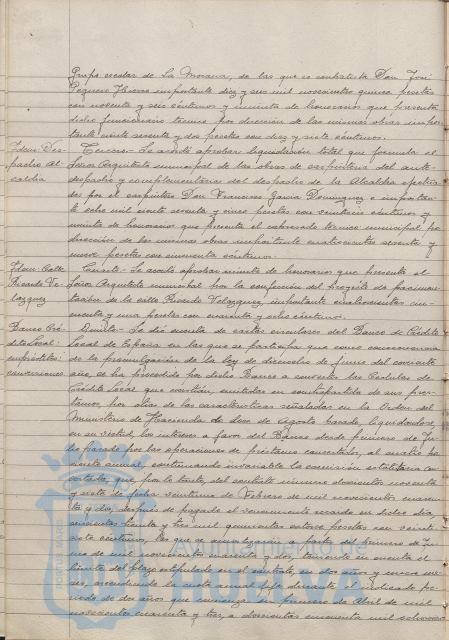 Grupo escolar de La Morana, de las que es contratista Don José
Pequeño Hierro importante diez y seis mil novecientas quince pesetas
con noventa y seis céntimos y minuta de honorarios que presenta
dicho funcionario técnico por dirección de las mismas obras impor-
tante ciento sesenta y dos pesetas con diez y siete céntimos.
Idem Des-
pacho Al-
caldia
Tercero - Se acordó aprobar liquidación total que formula el
Señor Arquitecto municipal de las obras de carpintería del ante-
despacho y complementarias del despacho de la Alcaldia efectua-
das por el carpintero Don Francisco Garcia Dominguez e importan-
te ocho mil ciento setenta y cinco pesetas con veintiseis céntimos y
minuta de honorarios que presenta el expresado tecnico municipal por
dirección de las mismas obras importante cuatrocientas sesenta y
nueve pesetas con cincuenta céntimos.
Idem Calle
Ricardo Ve-
lazquez
Cuarto - Se acordó aprobar minuta de honorarios que presenta el
Señor Arquitecto municipal por la confección del proyecto de pavimen-
tación de la calle Ricardo Velazquez, importante cuatrocientas cin-
cuenta y una pesetas con cuarenta y ocho céntimos.
Banco Cré-
dito Local:
empréstitos:
conversiones
Quinto - Se dió cuenta de cartas circulares del Banco de Crédito
Local de España en las que se participa que como consecuencia
de la promulgación de la Ley de dieciseis de junio del corriente
año, se ha procedido por dicho Banco a convertir las Cédulas de
Crédito Local que emitidas en contrapartida de sus pres-
tamos por otras de las características señaladas en la Orden del
Ministerio de Hacienda de doce de agosto pasado, liquidandose,
en su virtud, los intereses a favor del Banco desde primero de Ju-
lio pasado por las operaciones de prestamo concertadas, al cuatro por
ciento anual, continuando invariable la comisión estatutaria con-
certada, que, por lo tanto, del contrato número doscientos noventa
y siete de fecha veintiuno de Febrero de mil novecientos cuaren-
ta y dos, después de pagado el vencimiento
treinta y tres mil quinientas catorce pesetas con veinti-
siete céntimos, las que se amortizarán a partir del primero de Ju-
nio de mil novecientos cuarenta y dos, teniendo en cuenta el
limite del plazo estipulado en el contrato, en dos años y nueve me-
ses, ascendiendo la cuota anual fija durante el indicado pe-
riodo de dos años que comienza en primero de Abril de mil
novecientos cuarenta y tres, a doscientas cincuenta mil setecientas
Ayuntamiento de
HUELVA